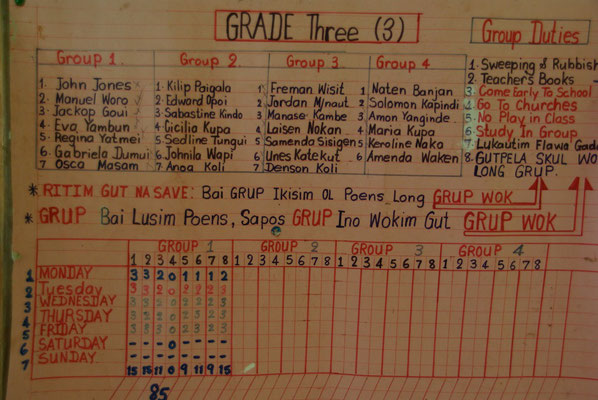 GRADE Three (3)
Group 1
1. John Jones
2. Manuel Woro
3. Jackop Goui
4. Eva Yambun
5. Regina Yatmei
6. Gabriela Dumui
7 Osca Masam
Group 2
1. Kilip Paigala
2. Edward Opoi
3. Sabastine Kindo
4. Cicilia Kupa
5 Sedline Tungui
6. Johnila Wapi
7. Anna Koli
Group 3
1 Freman Wisit
2 Jordan Mjnaut
3. Manase Kambe
4. Laisen Nokan
5. Samenda Sisigen
6 Unes Katekut
7 Denson Koli
Group 4
1. Naten Banjan
2 Solomon Kapindi
3. Amon Yanginde
4 Maria Kupa
5. Keroline Naka
6. Amenda Waken
Group Duties
1. Sweeping & Rubbish
2. Teacher's Books
3. Come Early To School
4 Go To Churches
5. No Play in Class
6. Study In Group
7. Lukautim Flawa
8. GUTPELA SKUL WOK
LONG GRUP.
* RITIM GUT NA SAVE: Bai GRUP Ikisim OL Poens Long GRUP WOK
* GRUP Bai Lusim Poens, Sapos GRUP Ino Wokim Gut GRUP WOK
GROUP 1 GROUP 2 GROUP 3 GROUP 4
1 2 3 4 5 6 7 8 1 2 3 4 5 6 7 8 1 2 3 4 5 6 7 8 1 2 3 4 5 6 7 8
1 MONDAY 3 3 2 0 1 1 1 2
2 Tuesday
3 WEDNESDAY
4 THURSDAY
5 FRIDAY
6 SATURDAY - - - 0 - - - -
7 SUNDAY - - - - - - - -
15 15 11 0 9 9 9 15
85